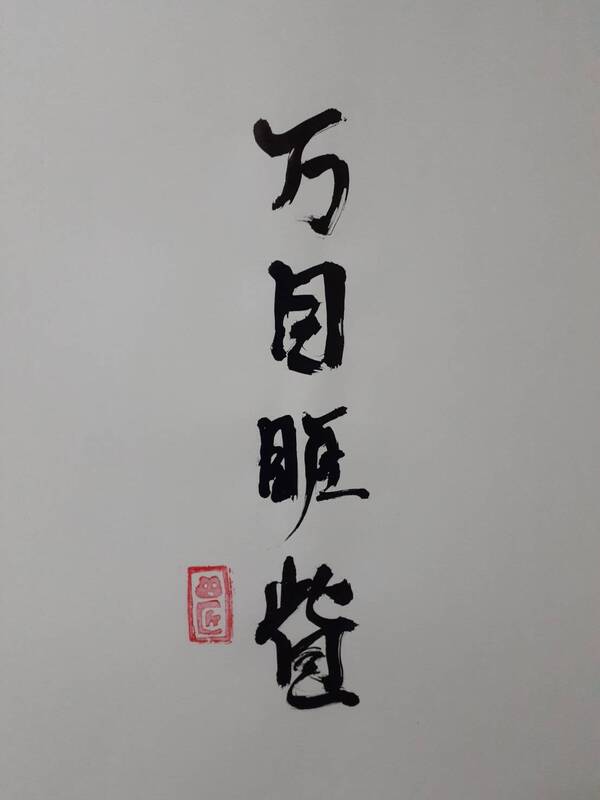 万目睚眥
匠